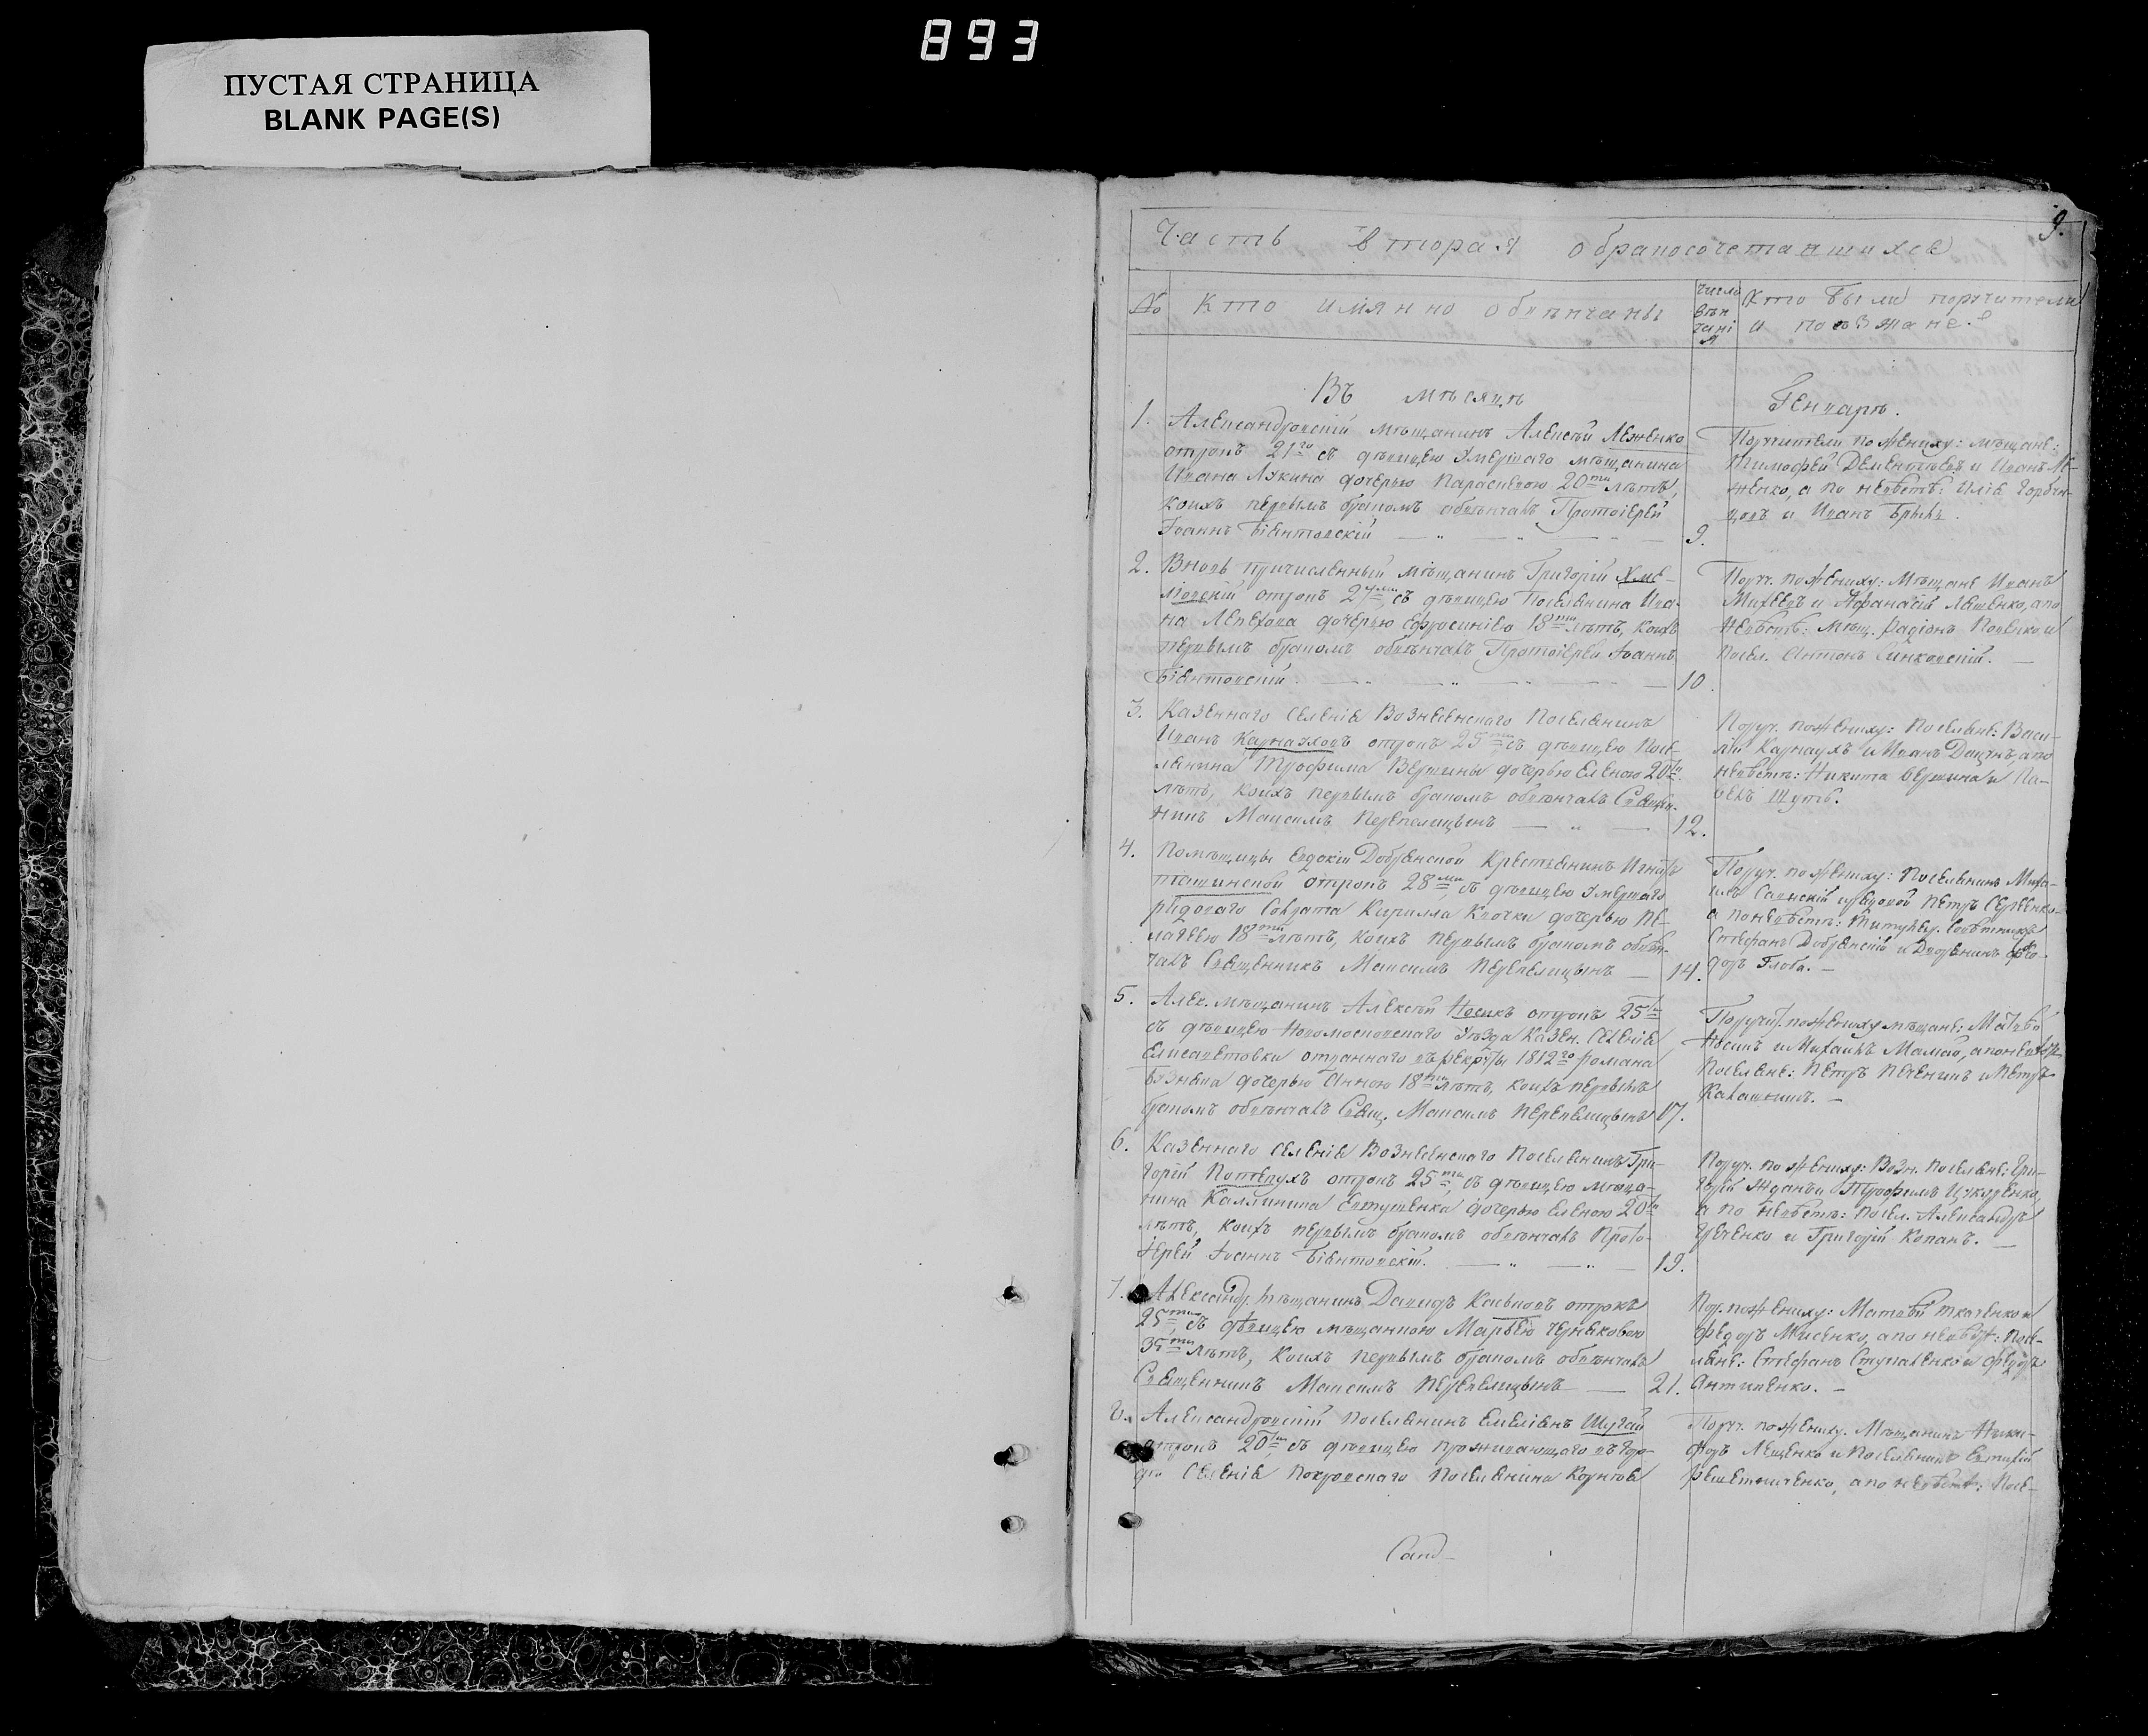 893
ПУСТАЯ СТРАНИЦА
BLANK PAGE(S)
9.
Часть вторая о бракосочетавшихся
№ Кто имянно обвѣнчаны
число вѣнчанія
Кто были поручители
и поѣзжане.
Въ мѣсяцѣ
Генварѣ.
1. Александровскій мѣщанинъ Алексѣй Леженко
отрокъ 21го съ дѣвицею умершаго мѣщанина
Ивана Лукина дочерью Параскевою 20ти лѣтъ,
коихъ первымъ бракомъ обвѣнчалъ Протоіерей
Іоаннъ Бѣлитовскій 9.
Поручители по женихѣ: мѣщане:
Тимофей Дементьевъ и Иванъ Ле-
женко, а по невѣстѣ: Илія
и Иванъ
2. Вновь причисленный мѣщанинъ Григорій Хме-
лiовскій отрокъ 27ми съ дѣвицею Поселянина Ива-
на Лепехова дочерью Ефросиніею 18ти лѣтъ, коихъ
первымъ бракомъ обвѣнчалъ Протоіерей Іоаннъ
10.
Поруч. по жениху: Мѣщане Иванъ
Михеевъ и Афанасій Лященко, а по
невѣстѣ: Мѣщ. Радіонъ Попенко и
Посел. Антонъ Синковскій.
3. Казеннаго селенія Вознесенскаго Поселянинъ
Иванъ Карнауховъ отрокъ 25ти съ дѣвицею Посе-
лянина Трофима Вершины дочерью Еленою 20ти
лѣтъ, коихъ первымъ бракомъ обвѣнчалъ Священ-
никъ Максимъ Перепелицынъ 12.
Поруч. по жениху: Поселяне: Васи-
лій Карнаухъ и Иванъ а по
невѣстѣ: Никита Вершина и Па-
велъ Шутъ.
4. Помѣщицы Евдокіи Добрянской Крестьянинъ
отрокъ 28ми съ дѣвицею умершаго
рядоваго Солдата Кирилла Клочки дочерью Пе-
лагеею 18ти лѣтъ, коихъ первымъ бракомъ обвѣн-
чалъ Священникъ Максимъ Перепелицынъ 14.
Поруч. по жениху: Поселянинъ Миха-
илъ и рядовой Петръ Сергѣенко
а по невѣстѣ: Титуляр. Совѣтникъ
Стефанъ Добрянскій и Дворянинъ Фео-
доръ Глоба.
5. Алек. мѣщанинъ Алексѣй Носикъ отрокъ 25ти
съ дѣвицею Новомосковскаго Уѣзда Казен. селенія
Елисаветовки отданнаго въ рекруты 1812го Романа
дочерью Анною 18ти лѣтъ, коихъ первымъ
бракомъ обвѣнчалъ Свящ. Максимъ Перепелицынъ 17.
Поручит. по жениху мѣщане: Матвѣй
Носикъ и Михаилъ Мамай, а по невѣстѣ
Поселяне: Петръ и Петръ
Калашникъ.
6. Казеннаго селенія Вознесенскаго Поселянинъ Гри-
горій Потапухъ отрокъ 25ти съ дѣвицею мѣща-
нина Каллиника Евтушенка дочерью Еленою 20ти
лѣтъ, коихъ первымъ бракомъ обвѣнчалъ Прото-
іерей Іоаннъ 19.
Поруч. по жениху: Возн. Поселяне: Гри-
горій Жданъ и Трофимъ
а по невѣстѣ: Посел. Александръ
и Григорій Копанъ.
7. Александр. мѣщанинъ Давидъ отрокъ
25ти съ дѣвицею мѣщанкою Марѳею Черняковою
35ти лѣтъ, коихъ первымъ бракомъ обвѣнчалъ
Священникъ Максимъ Перепелицынъ 21.
Пор. по жениху: Матвѣй Ткаченко и
Федоръ Мисенко, а по невѣст: Посе-
ляне: Стефанъ Ступаченко и Федоръ
Антипенко.
8. Александровскій поселянинъ Емеліянъ Шугай
отрокъ 20ти съ дѣвицею проживающаго въ горо-
дѣ селенія Покровскаго Поселянина Корнѣя
Поруч. по жениху. Мѣщанинъ Ники-
форъ Лещенко и Поселянинъ Евтихій
Решетниченко, а по невѣстѣ: Посе-